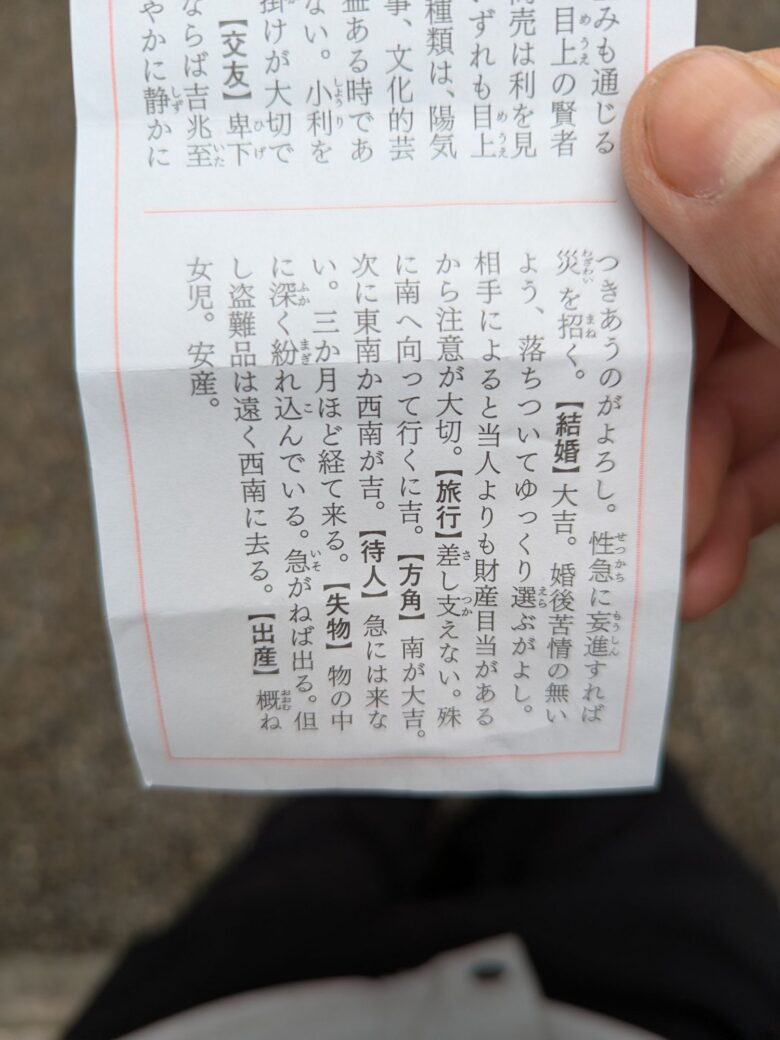 みも通じる
目上の賢者
商売は利を見
ずれも目上
種類は、陽気
事、文化的芸
益ある時であ
ない。小利を
掛けが大切で
【交友】卑下
ならば吉兆至
やかに静かに
つきあうのがよろし。性急に妄進すれば
災を招く。【結婚】大吉。婚後苦情の無い
よう、落ちついてゆっくり選ぶがよし。
相手によると当人よりも財産目当がある
から注意が大切。【旅行】差し支えない。殊
に南へ向って行くに吉。【方角】南が大吉。
次に東南か西南が吉。【待人】急には来な
い。三か月ほど経て来る。【失物】物の中
に深く紛れ込んでいる。急がねば出る。但
し盗難品は遠く西南に去る。【出産】概ね
女児。安産。